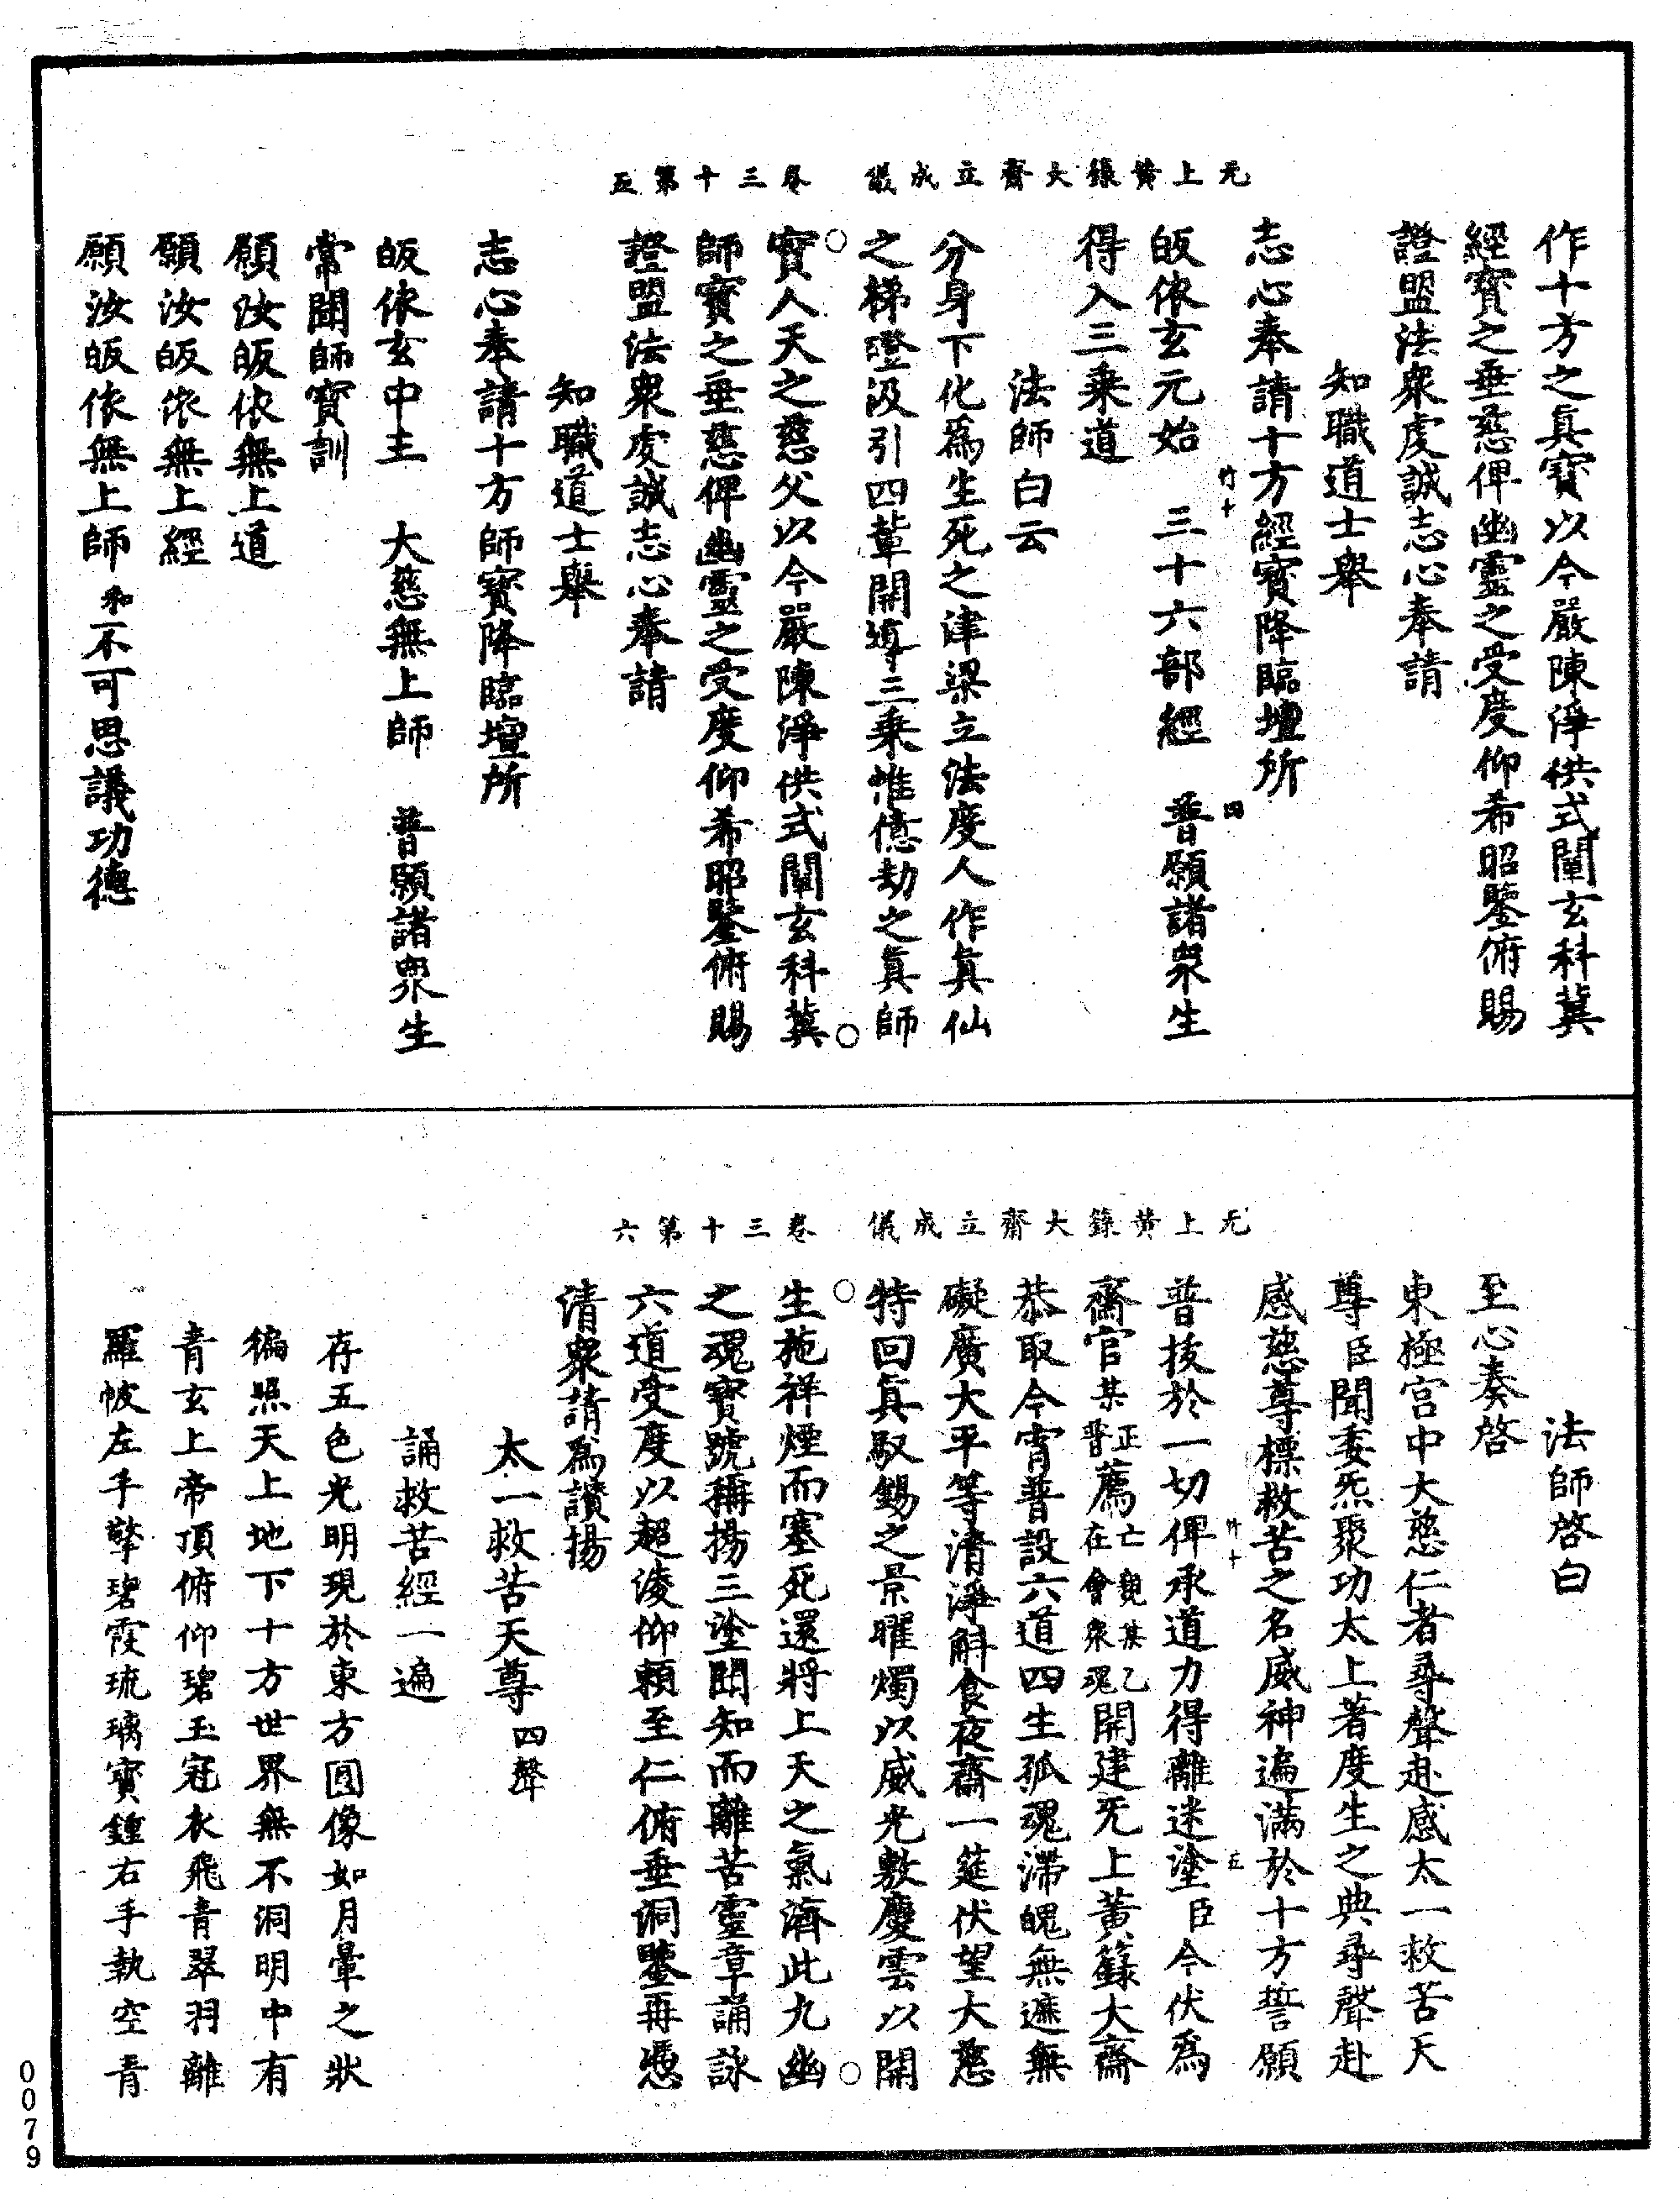 无上黃籙大齋立成儀　卷三十第五
作十方之眞寶以今嚴陳淨供式闡玄科冀
經寶之垂慈俾幽靈之受度仰希昭鑒俯賜
證盟法衆虔誠志心奉請
知職道士舉
志心奉請十方經寶降臨壇所
竹十　四
皈依玄元始　三十六部經　普願諸衆生
得入三乘道
法師白云
分身下化爲生死之津梁立法度人作眞仙
之梯磴汲引四輩開導三乘惟億劫之眞師
實人天之慈父以今嚴陳淨供式闡玄科冀
師寶之垂慈俾幽靈之受度仰希昭鑒俯賜
證盟法衆虔誠志心奉請
知職道士舉
志心奉請十方師寶降臨壇所
皈依玄中主　大慈無上師　普願諸衆生
常聞師寶訓
願汝皈依無上道
願汝皈依無上經
願汝皈依無上師　和不可思議功德
无上黃籙大齋立成儀　卷三十第六
法師啓白
至心奏啓
東極宮中大慈仁者尋聲赴感太一救苦天
尊臣聞委炁聚功太上著度生之典尋聲赴
感慈尊標救苦之名威神遍滿於十方誓願
竹十　五
普拔於一切俾承道力得離迷塗臣今伏爲
齋官某正普薦亡魂某乙在會衆魂開建无上黃籙大齋
恭取今宵普設六道四生孤魂滯魄無遮無
礙廣大平等清淨斛食夜齋一筵伏望大慈
特回眞馭錫之景曜燭以威光敷慶雲以開
生施祥煙而塞死還將上天之氣濟此九幽
之魂寶號稱揚三塗聞知而離苦靈章誦詠
六道受度以超淩仰賴至仁俯垂洞鑒再憑
清衆請爲讃揚
太一救苦天尊　四聲
誦救苦經一遍
存五色光明現於東方圓像如月暈之狀
徧照天上地下十方世界無不洞明中有
青玄上帝頂俯仰碧玉冠衣飛青翠羽離
羅帔左手擎碧霞琉璃寶鍾右手執空青
0079